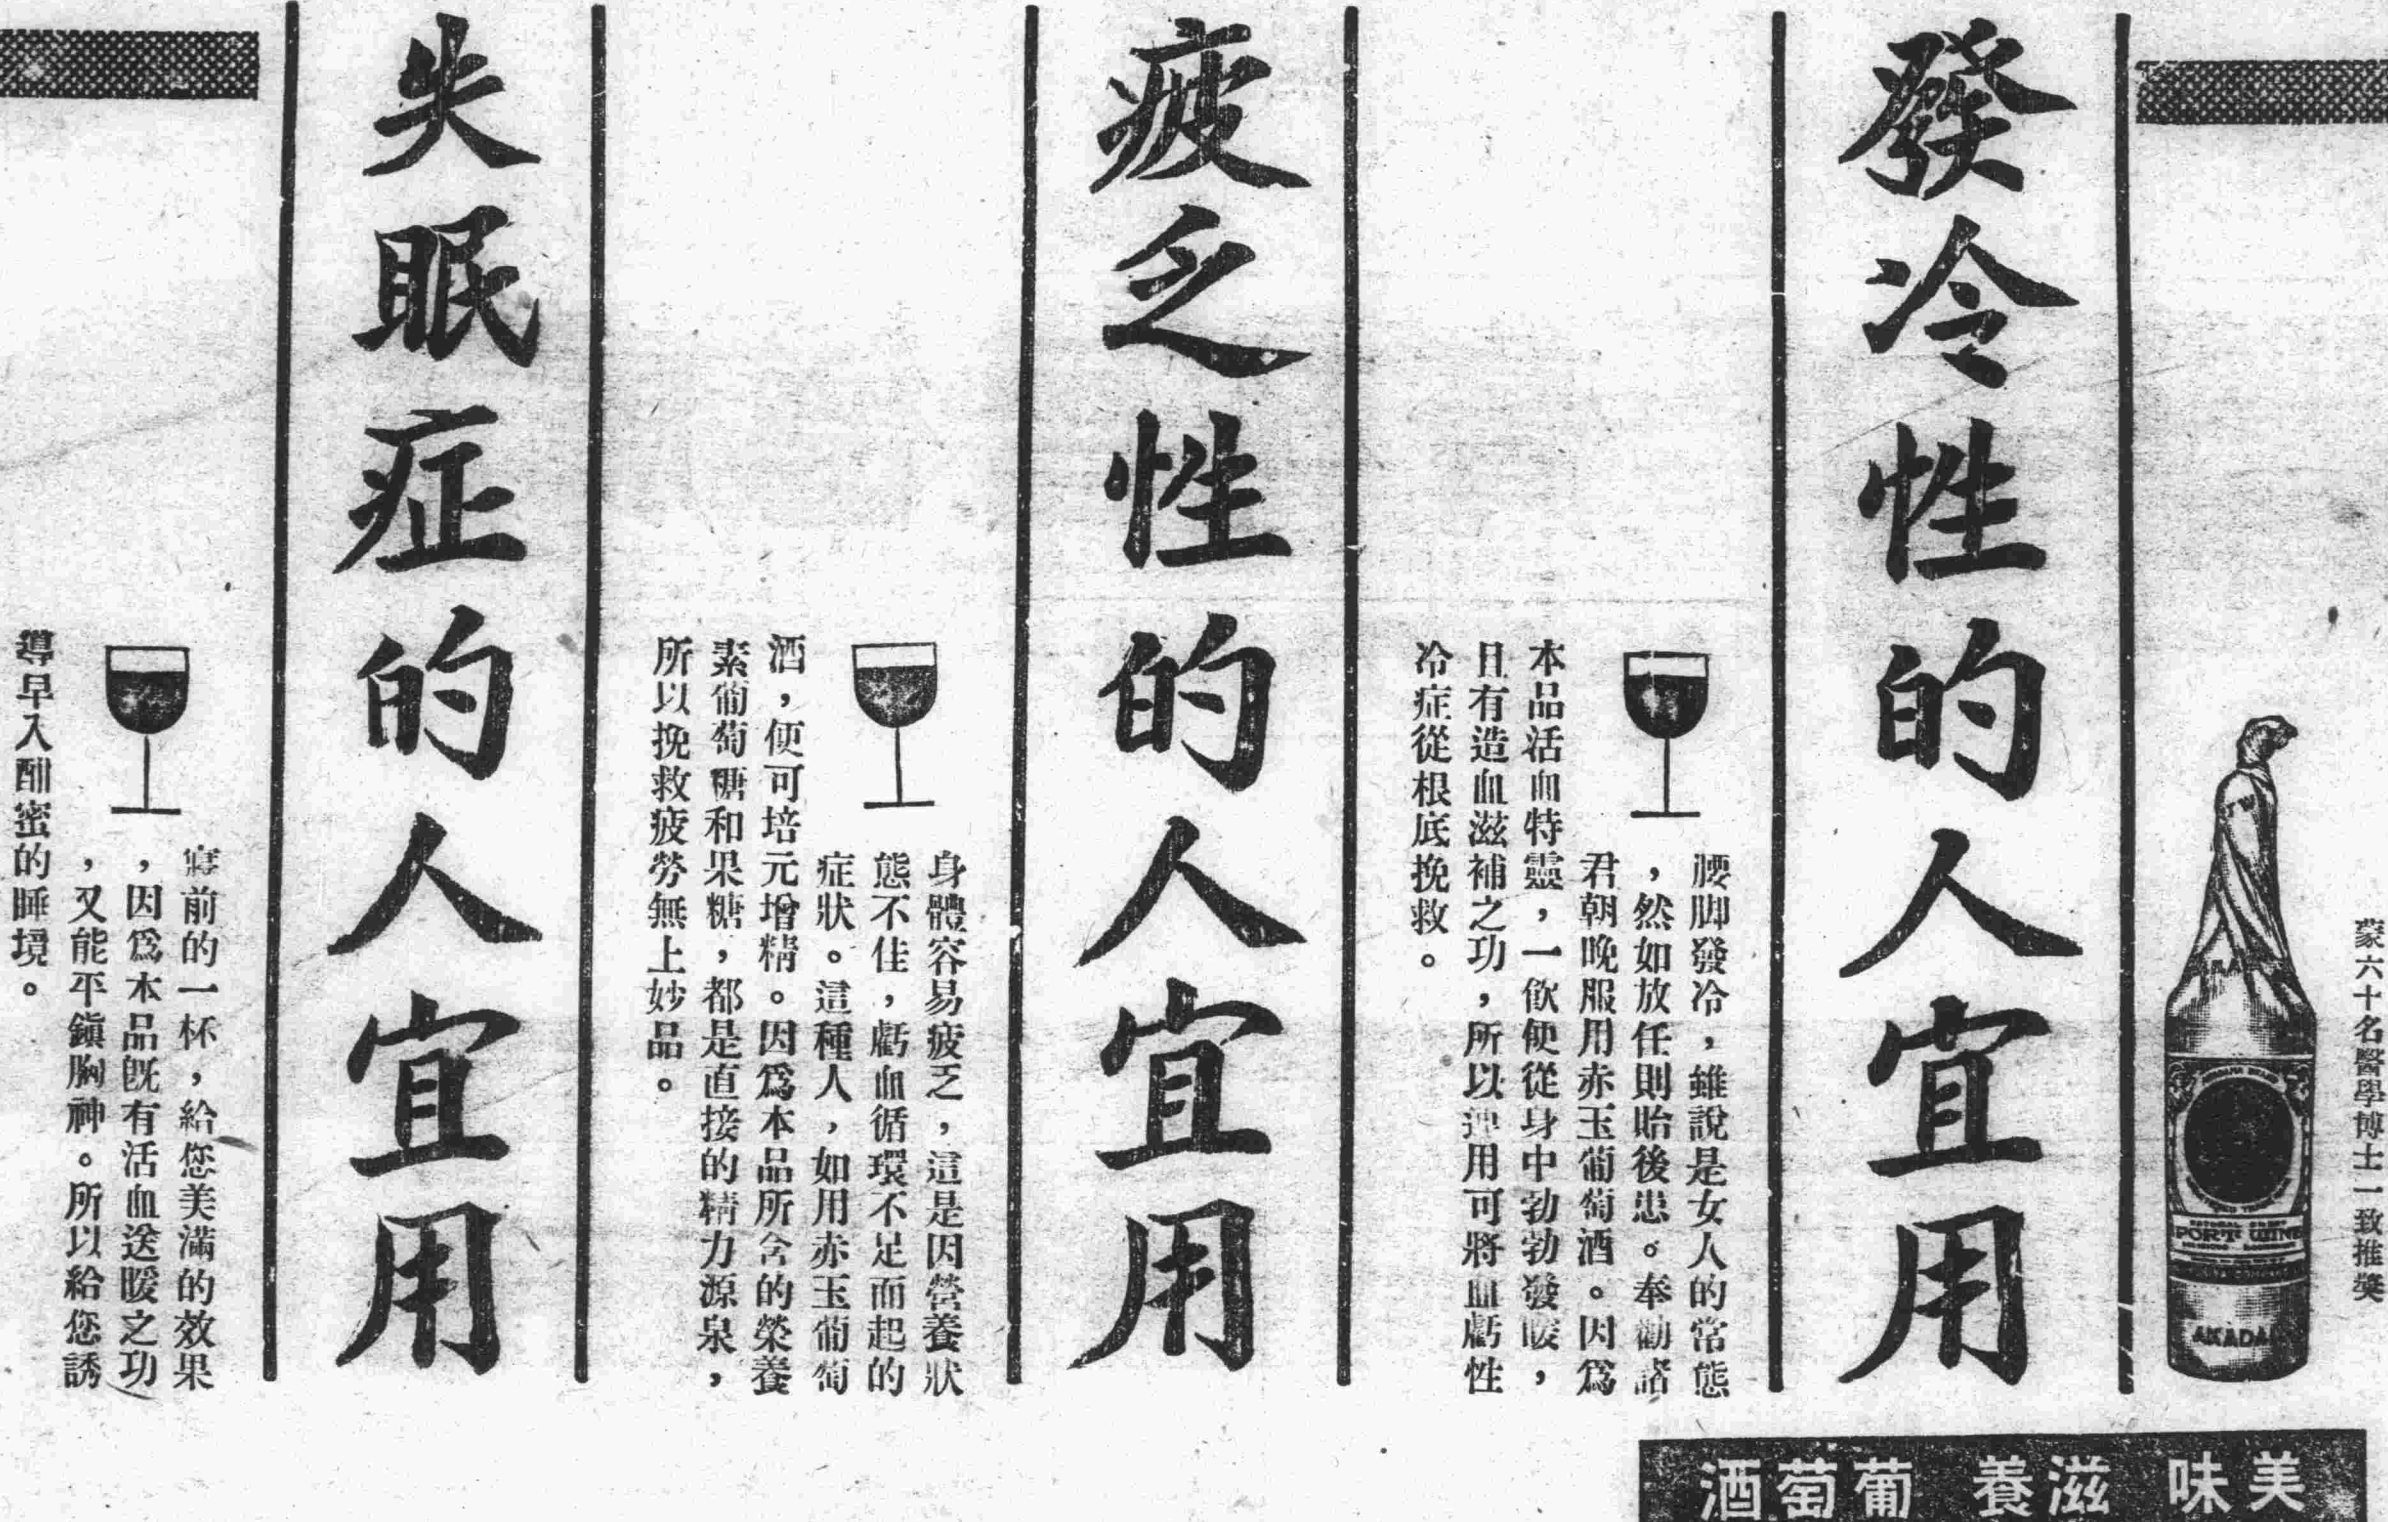 蒙六十名醫學博士一致推獎
PORT WINE
AKADA
發冷性的人宜用
腰脚發冷，雖說是女人的常態
，然如放任則貽後患。奉勸諸
君朝晚服用赤玉葡萄酒。因爲
本品活血特靈，一飲便從身中勃勃發暖，
且有造血滋補之功，所以連用可將血虧性
冷症從根底挽救。
疲乏性的人宜用
身體容易疲乏，這是因營養狀
態不佳，虧血循環不足而起的
症狀。這種人，如用赤玉葡萄
酒，便可培元增精。因爲本品所含的榮養
素葡萄糖和果糖，都是直接的精力源泉，
所以挽救疲勞無上妙品。
失眠症的人宜用
寢前的一杯，給您美滿的效果
，因爲本品旣有活血送暖之功
，又能平鎭胸神。所以給您誘
導早入酣蜜的睡境。
美味 滋養 葡萄酒